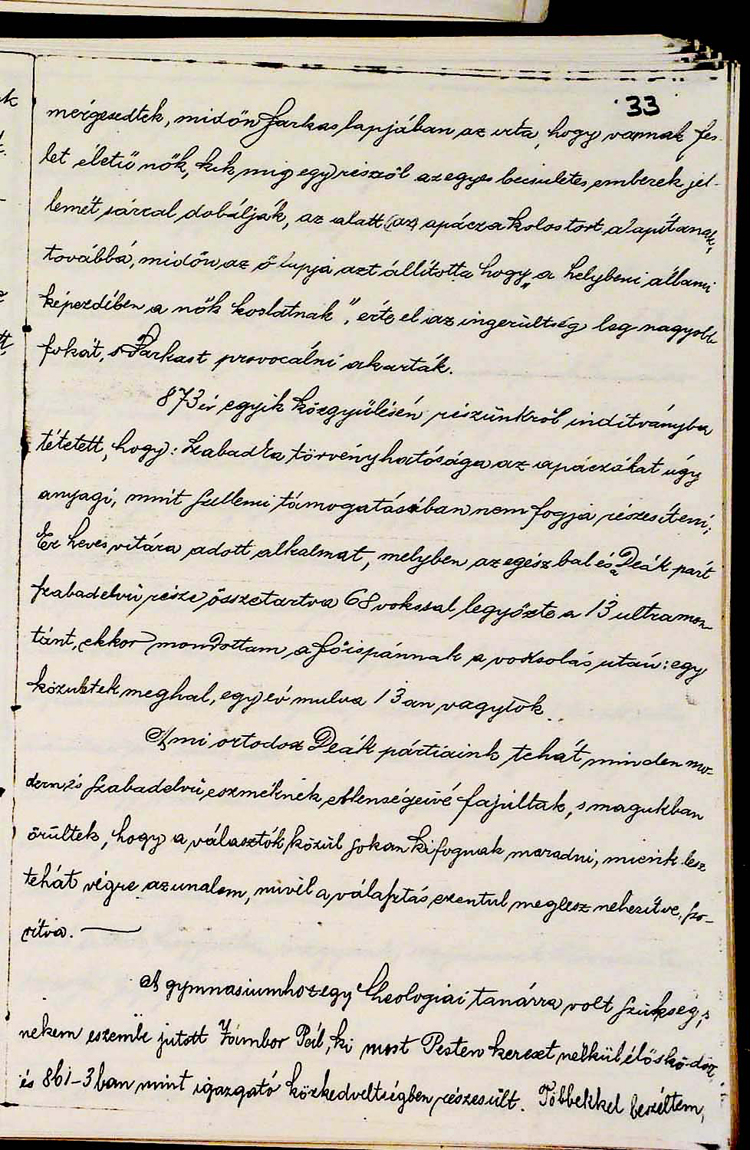 33
mérgesedtek, midőn Farkas lapjában az irta, hogy vannak fes-
let életű nők, kik mig egy részről az egyes becsületes emberek jel-
lemét sárral dobálják, az alatt (az) apácza kolostort alapítanak,
továbbá, midőn az ő lapja azt állította hogy „a helybeni állami
képezdében a nők koslatnak", érte el az ingerültség leg nagyobb
fokát, s Farkast provocálni akarták.
873 év egyik közgyülésén részünkről indítványba
tétetett, hogy: Szabadka törvényhatósága az apáczákat úgy
anyagi, mint szellemi támogatásában nem fogja részesíteni;
Ez heves vitára adott alkalmat, melyben az egész bal és a Deák párt
szabadelvü része összetartva 68 vokssal legyőzte a 13 ultramon-
tánt, ekkor mondottam a főispánnak a voksolás után: egy
közületek meghal, egy év mulva 13an vagytok.
A mi ortodox Deák pártiaink tehát minden mo-
dern és szabadelvü eszméknek ellenségeivé fajúltak, s magukban
örültek, hogy a választók közül sokan ki fognak maradni, mienk lesz
tehát végre az uralom, mivel a válasitás ezentul meglesz nehezítve, szo-
rítva. —
A gymnasiumhoz egy theologiai tanárra volt szükség, s
nekem eszembe jutott Zámbor Pál, ki most Pesten kereset nélkül élősködött
és 861-3ban mint igazgató közkedveltségben részesült. Többekkel beszéltem,